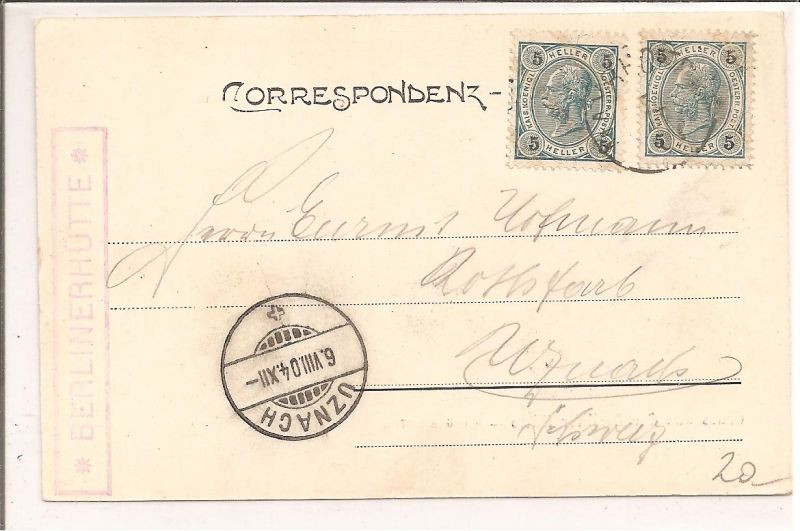 CORRESPONDENZ-
5 HELLER 5
KAIS. KOENIGL. OESTERR. POST
5 HELLER 5
5 HELLER 5
KAIS. KOENIGL. OESTERR. POST
5 HELLER 5
* BERLINERHÜTTE *
Herrn Hofmann
Uznach
Schweiz
6.VIII.04.XII-
UZNACH
20